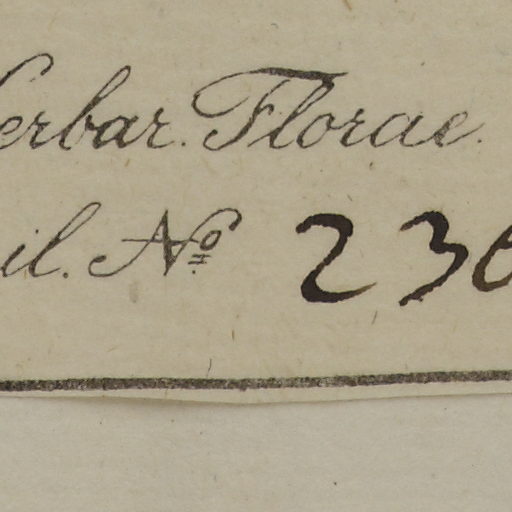 erbar. Florae.
il. Nº 23